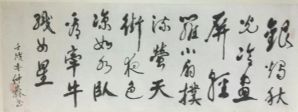 銀燭秋
光冷畫
屏輕
羅小扇撲
流螢天
街夜色
涼如水臥
看牽牛
織女星